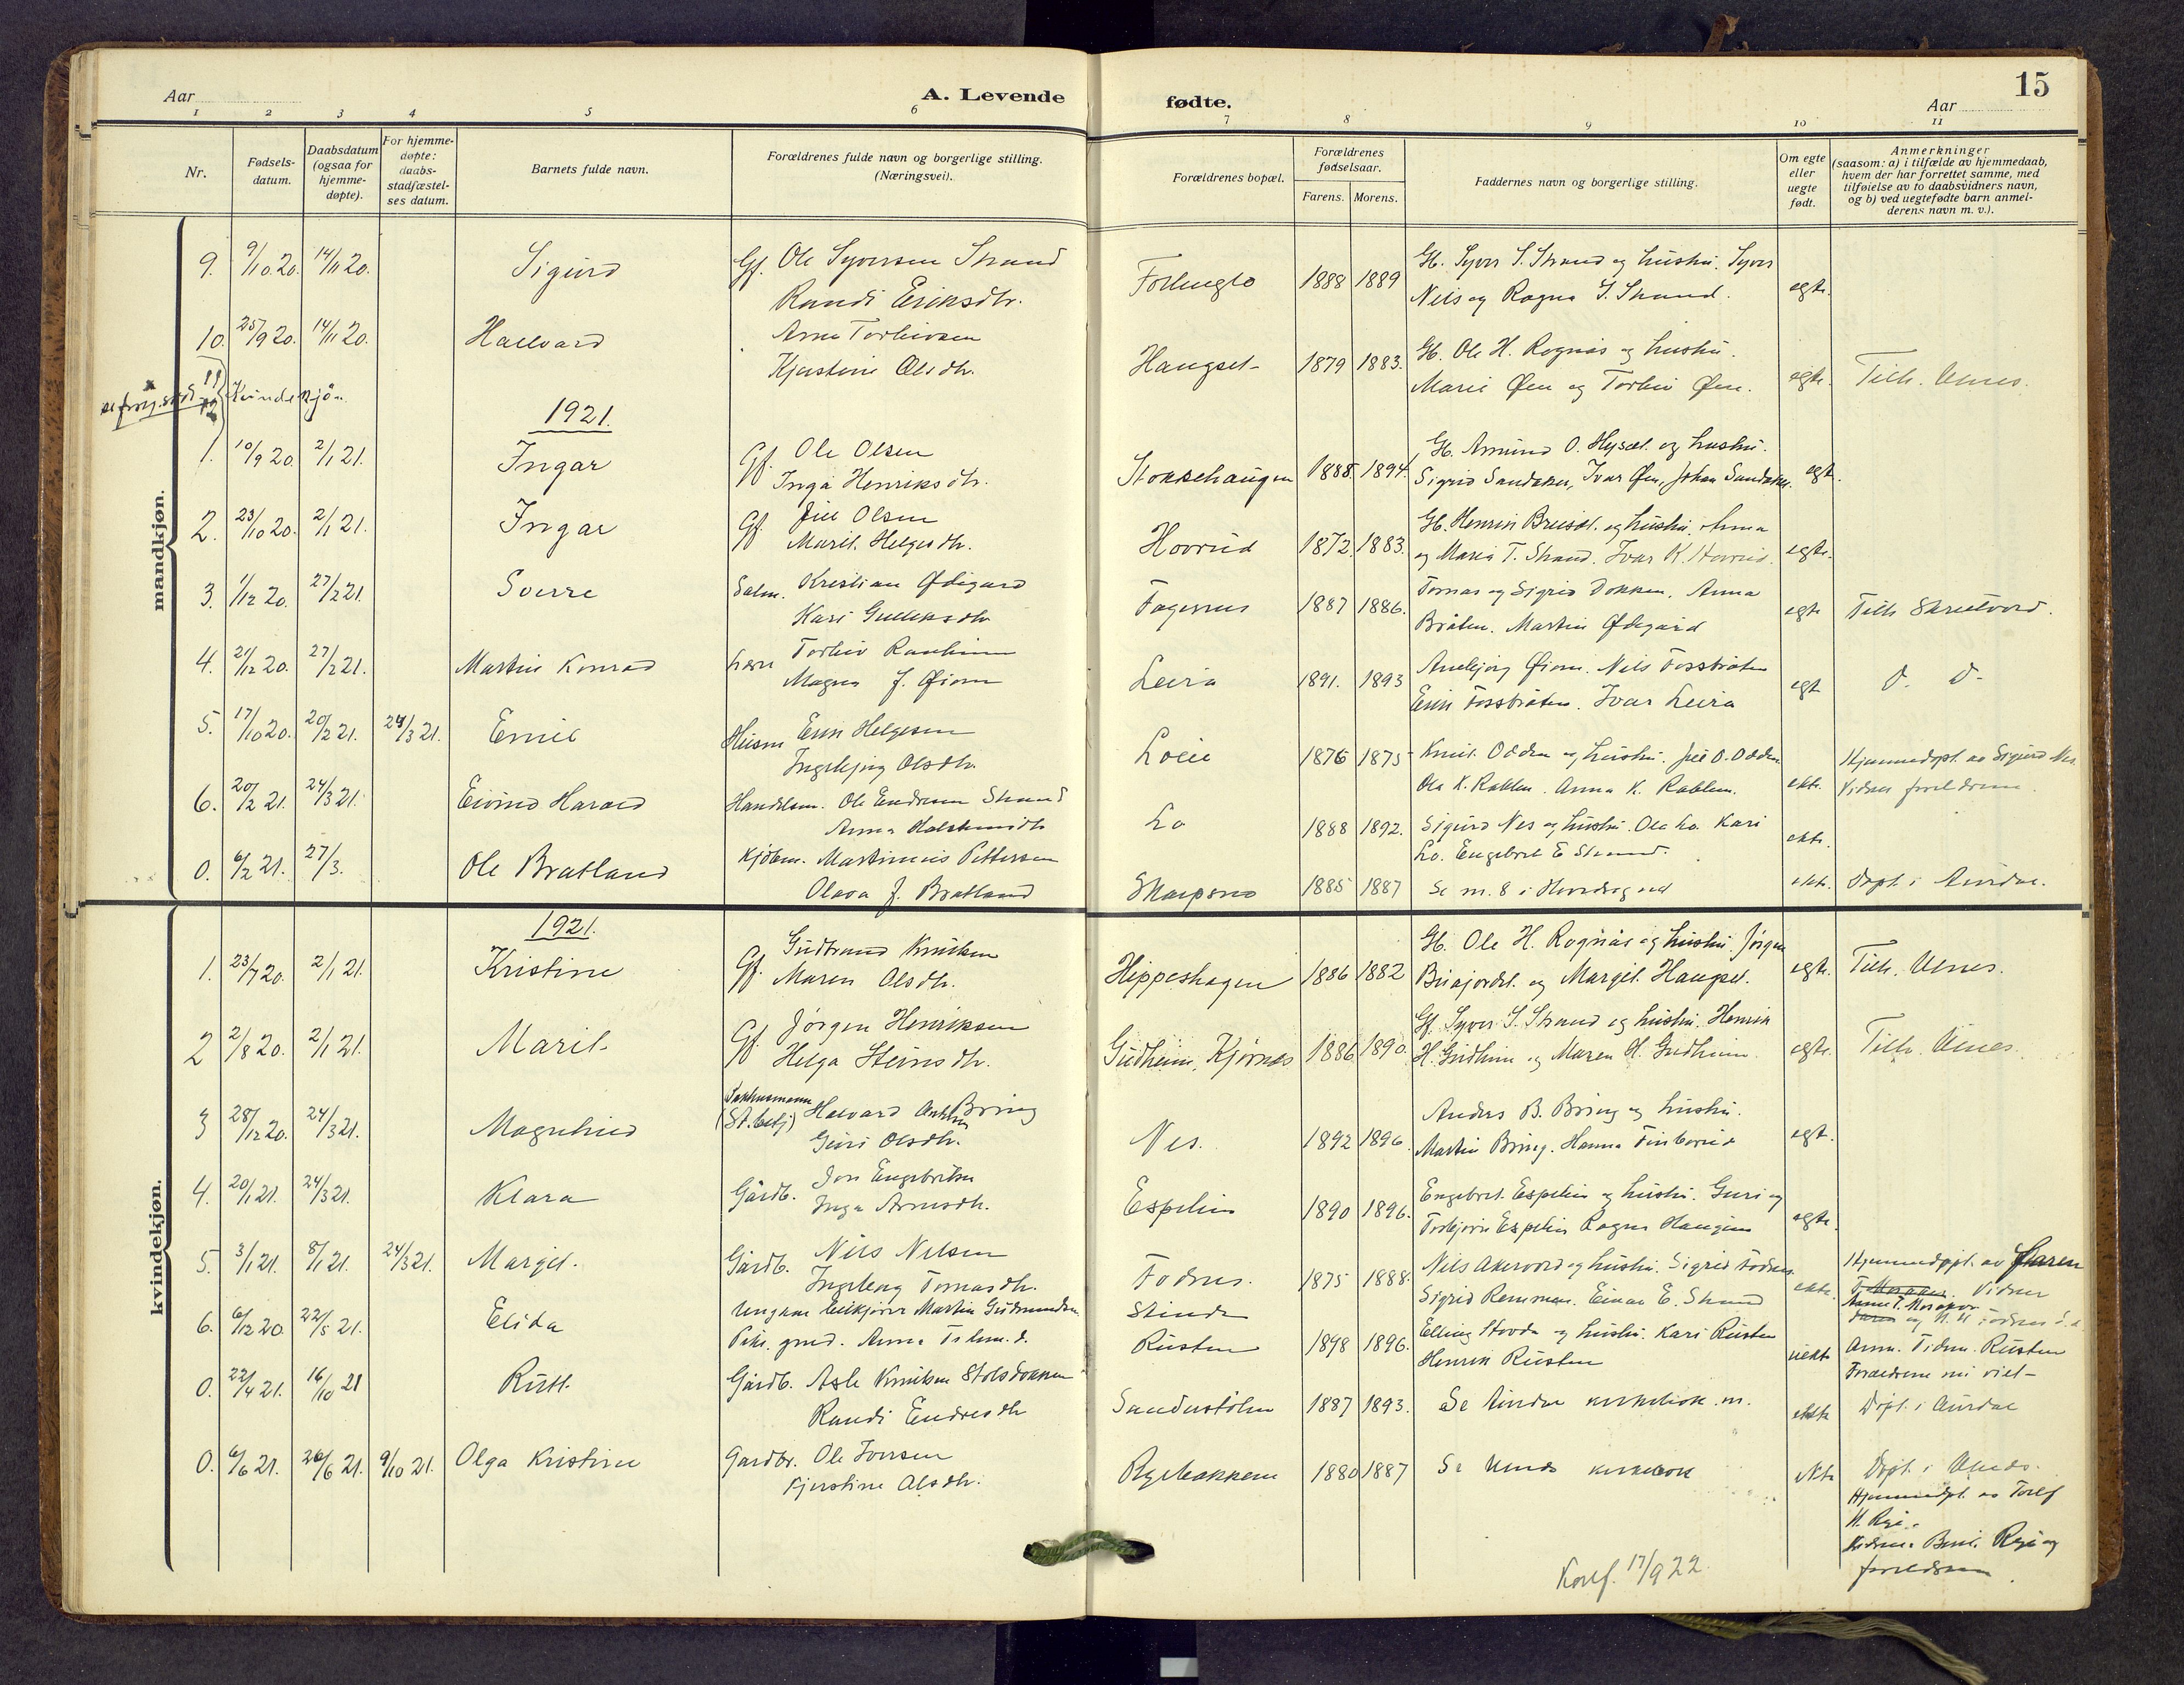 15
Aar
A. Levende
fødte.
Aar
1 2 3 4 5 6 7 8 9 10 11
Nr.
Fødsels-
datum.
Daabsdatum
(ogsaa for
hjemme-
døpte).
For hjemme-
døpte:
daabs-
stadfæstel-
ses datum.
Barnets fulde navn.
Forældrenes fulde navn og borgerlige stilling.
(Næringsvei).
Forældrenes bopæl.
Forældrenes
fødselsaar.
Farens. Morens.
Faddernes navn og borgerlige stilling.
Om egte
eller
uegte
født.
Anmerkninger
(saasom: a) i tilfælde av hjemmedaab,
hvem der har forrettet samme, med
tilføielse av to daabsvidners navn,
og b) ved uegtefødte barn anmel-
derens navn m. v.).
mandkjøn.
9. 9/10 20. 14/11 20. Sigurd Gf. Ole Syversen Strand
Randi Eriksdtr.
1888 1889 Gb. Syver S. Strand og hustru. Syver
Nils og Ragna S. Strand. egte.
10. 25/9 20. 14/11 20. Hallvard Arne Torleivsen
Kjerstine Olsdtr.
Haugset 1879 1883. Gb. Ole H. Rognås og hustru.
Marie Øen og Torleiv Øen. egte. Tilh. Ulnes.
11 12 Kvindekjøn
1921.
1. 10/9 20. 2/1 21. Ingar Gf. Ole Olsen
Inga Henriksdtr.
Stokkehaugen 1888. 1894. Gb. Amund O. Hyset. og hustru.
Sigrid Sandaker, Ivar Øen, Johan Sandaker. egt.
2. 23/10 20. 2/1 21. Ingar Gf. Juel Olsen
Marit Helgesdtr.
Hovrud 1872 1883. Gb. Henrik Breiset. og hustru. Anna
og Maria T. Strand. Ivar K. Hovrud. egte.
3. 1/12 20. 27/2 21. Sverre Salm. Kristian Ødegard
Kari Gulleksdtr
Fagernes 1887 1886. Tomas og Sigrid Dokken. Anna
Bråten. Martin Ødegård egte Tilh Skrutvold.
4. 21/12 20. 27/2 21. Martin Konrad Torleiv
Magna J. Øiom
Leira 1891. 1893 Anebjørg Øiom. Nils Fossbråten
Erik Fossbråten. Ivar Leira egt D. D-
5. 17/10 20. 20/2 21. 24/3 21. Emil Husm Erik Helgesen
Ingebjørg Olsdtr.
1876 1875 Knut Odden og hustru. Juel O. Odden
Ola K. Rabben. Anna K. Rabben. ekte. Hjemmedøpt. av Sigurd Nes.
Vidner foreldrene.
6. 20/2 21. 24/3 21. Eivind Harald Handelsm. Ole Endresen Strand
Anna
Lo 1888 1892. Sigurd Nes og hustru. Ole Lo. Kari
Lo. Engebret E Strand. ekte.
0. 6/2 21. 27/3. Ole Bratland Kjøbm. Martinius Pettersen
Olava J. Bratland
Skarpsno 1885 1887 Se nr. 8 i Hovedsognet ekte. Døpt i Aurdal.
kvindekjøn.
1921.
1. 23/7 20. 2/1 21. Kristine Gf. Gudbrand Knutsen
Maren Olsdtr.
Hippeshagen 1886 1882 Gb. Ole H. Rognås og hustru. Jørgen
og Margit Haugset. egte. Tilh. Ulnes.
2 2/8 20. 2/1 21. Marit Gf. Jørgen Henriksen
Helga Steinsdtr.
Gudheim, Kjørnes 1886 1890. Gf. Syver S. Strand og hustru. Henrik
H. Gudheim og Maren H. Gudheim. egte. Tilh. Ulnes.
3 28/12 20. 24/3 21. Magnhild (St. betj) Halvard Bring
Guri Olsdtr.
Nes. 1892 1896 Anders B. Bring og hustru.
Martin Bring. Hanna egt.
4. 20/1 21. 24/3 21. Klara Gårdb. Jon Engebritsen
Inga Arnesdtr.
Espelien 1890 1896. Engebret Espelien og hustru. Guri og
Torbjørn Espelien Ragna Haugen egte.
5. 3/1 21. 8/1 21. 24/3 21. Margit. Gårdb. Nils Nilsen
Ingeborg Tomasdtr.
Fodnes. 1875 1888. Nils Akervold og hustru. Sigrid Fodnes.
Sigrid Remmen. Einar E. Strand ekte. Hjemmedøpt. av Faren
Vidner
6. 6/12 20. 22/5 21. Elida Ungkar Martin Gudmundsen
Pike. Anna
Rusten 1898 1896. Elling Hovda og hustru. Kari Rusten
Henrik Rusten uekte Anm. Tidem. Rusten
Foreldrene nu viet
0. 22/4 21. 16/10 21 Rutt. Gårdb. Asle Knutsen Stolsdokken
Randi Endresdtr
Sandestølen 1887 1893. Se Aurdal kirkebok nr. ekte Døpt. i Aurdal
0. 6/6 21. 26/6 21. 9/10 21. Olga Kristine Gardbr. Ole Iversen
Kjerstine Olsdtr.
Ryebakken 1880 1887 Se Ulnes kirkebok ekte Døpt. i Ulnes.
Hjemmedøpt. av Tolef
H. Rye.
Vidner Berit Rye og
foreldrene.
Konf. 17/9 22.